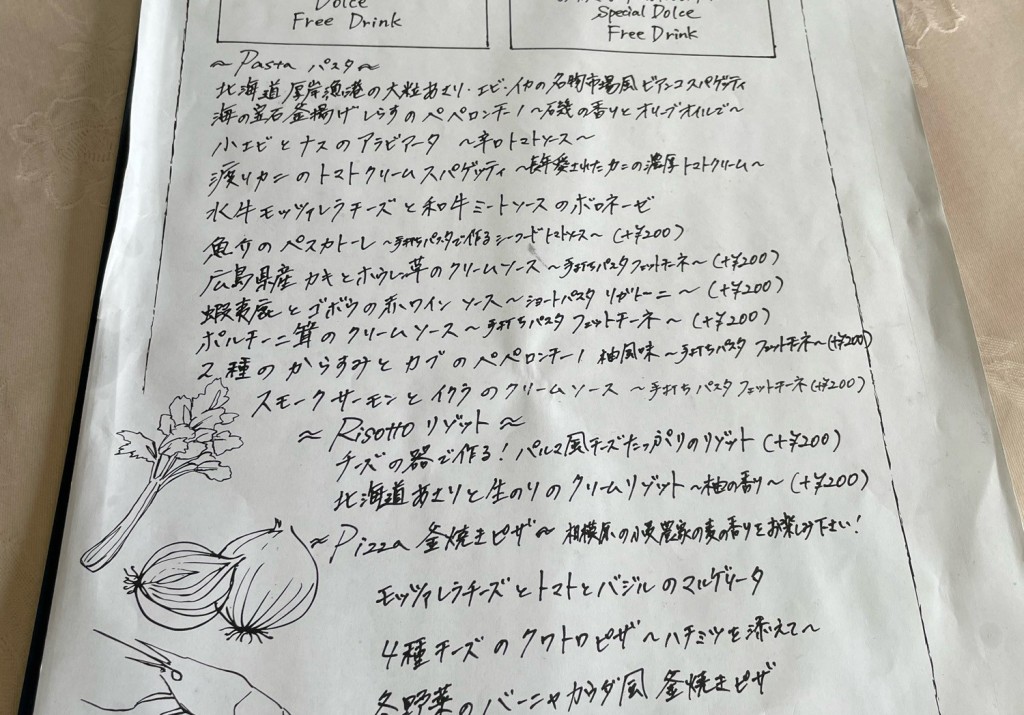 Dolce
Free Drink
Special Dolce
Free Drink
～Pasta パスタ～
北海道厚岸漁港の大粒あさり・エビ・イカの名物市場風ビアンコスパゲッティ
海の宝石釜揚げしらすのペペロンチーノ～磯の香りとオリーブオイルで～
小エビとナスのアラビアータ ～辛口トマトソース～
渡りカニのトマトクリームスパゲッティ～長年愛されたカニの濃厚トマトクリーム～
水牛モッツァレラチーズと和牛ミートソースのボロネーゼ
魚介のペスカトーレ～手打ちパスタで作るシーフードトマトソース～ (+¥200)
広島県産カキとホウレン草のクリームソース～手打ちパスタフェットチーネ～(+¥200)
蝦夷鹿とゴボウの赤ワインソース～ショートパスタ リガトーニ～ (+¥200)
ポルチーニ茸のクリームソース～手打ちパスタ フェットチーネ～ (+¥200)
2種のからすみとカブのペペロンチーノ 柚風味～手打ちパスタ フェットチーネ～(+¥200)
スモークサーモンとイクラのクリームソース ～手打ちパスタフェットチーネ(+¥200)
～Risotto リゾット～
チーズの器で作る！パルマ風チーズたっぷりのリゾット (+¥200)
北海道あさりと生のりのクリームリゾット～柚の香り～(+¥200)
～Pizza 釜焼きピザ～ 相模原の小麦農家の麦の香りをお楽しみ下さい！
モッツァレラチーズとトマトとバジルのマルゲリータ
4種チーズのクワトロピザ～ハチミツを添えて～
冬野菜のバーニャカウダ風 釜焼きピザ